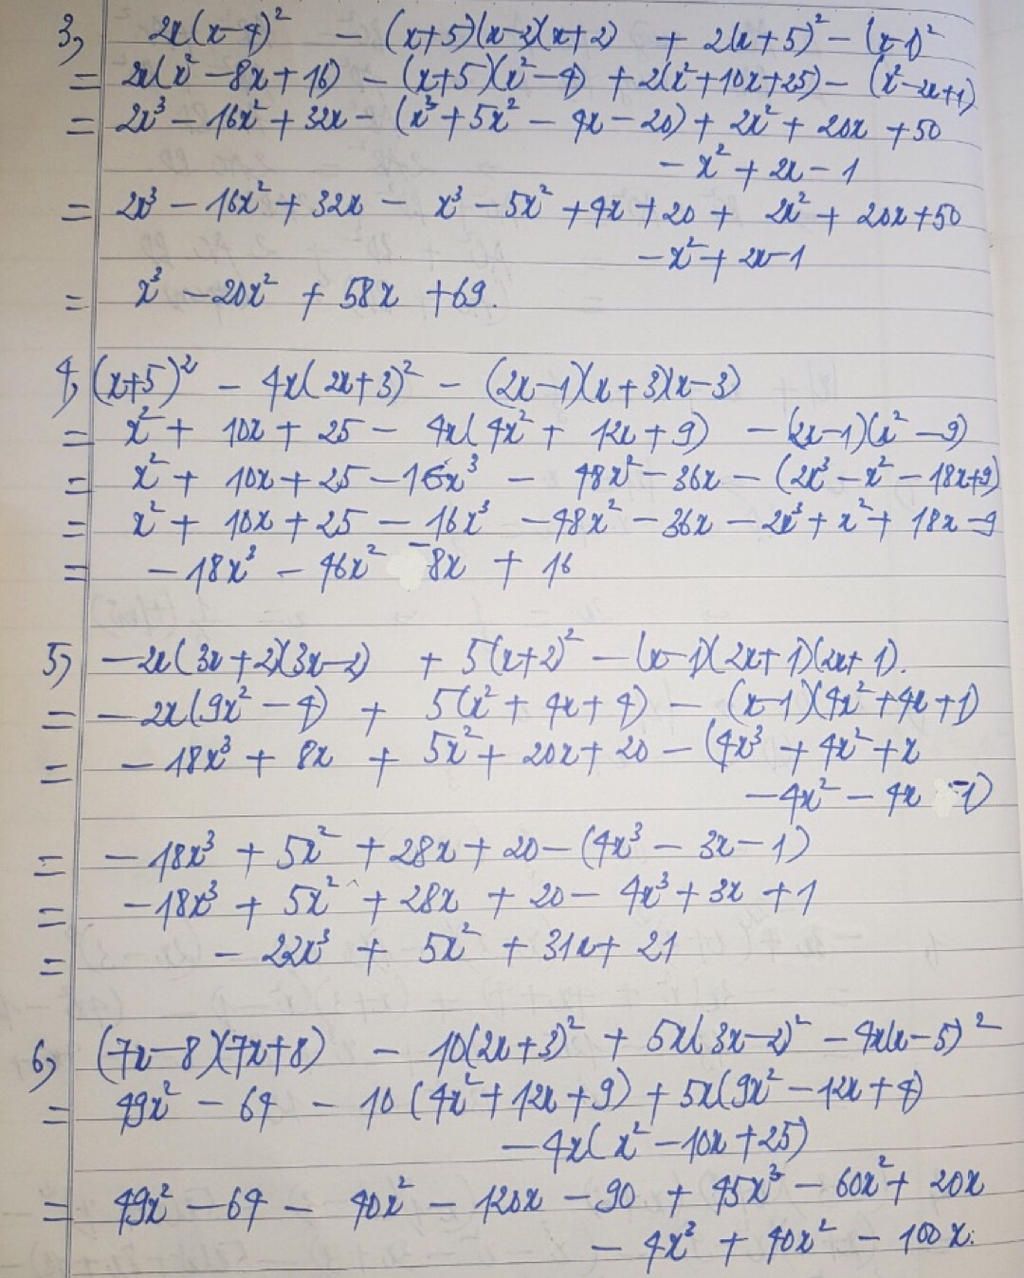 3, 2x(x-4)² - (x+5)(x-2)(x+2) + 2(x+5)² - (x-1)²
= 2x(x² - 8x + 16) - (x+5)(x² - 4) + 2(x² + 10x + 25) - (x² - 2x + 1)
= 2x³ - 16x² + 32x - (x³ + 5x² - 4x - 20) + 2x² + 20x + 50
- x² + 2x - 1
= 2x³ - 16x² + 32x - x³ - 5x² + 4x + 20 + 2x² + 20x + 50
- x² + 2x - 1
= x³ - 20x² + 58x + 69.
4, (x+5)² - 4x(2x+3)² - (2x-1)(x+3)(x-3)
= x² + 10x + 25 - 4x(4x² + 12x + 9) - (2x-1)(x² - 9)
= x² + 10x + 25 - 16x³ - 48x² - 36x - (2x³ - x² - 18x + 9)
= x² + 10x + 25 - 16x³ - 48x² - 36x - 2x³ + x² + 18x - 9
= - 18x³ - 46x² - 8x + 16
5, - 2x(3x+2)(3x-2) + 5(x+2)² - (x-1)(2x+1)(2x+1).
= - 2x(9x² - 4) + 5(x² + 4x + 4) - (x-1)(4x² + 4x + 1)
= - 18x³ + 8x + 5x² + 20x + 20 - (4x³ + 4x² + x
- 4x² - 4x - 1)
= - 18x³ + 5x² + 28x + 20 - (4x³ - 3x - 1)
= - 18x³ + 5x² + 28x + 20 - 4x³ + 3x + 1
= - 22x³ + 5x² + 31x + 21
6, (7x-8)(7x+8) - 10(2x+3)² + 5x(3x-2)² - 4x(x-5)²
= 49x² - 64 - 10(4x² + 12x + 9) + 5x(9x² - 12x + 4)
- 4x(x² - 10x + 25)
= 49x² - 64 - 40x² - 120x - 90 + 45x³ - 60x² + 20x
- 4x³ + 40x² - 100x.